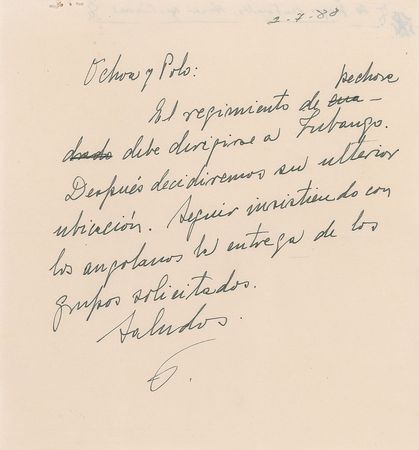 2-7-88
Ochoa y Polo:
pechora
El regimiento de cua-
drado debe dirigirse a Lubango.
Después decidiremos su ulterior
ubicación. Seguir insistiendo con
los angolanos la entrega de los
grupos solicitados.
Saludos.